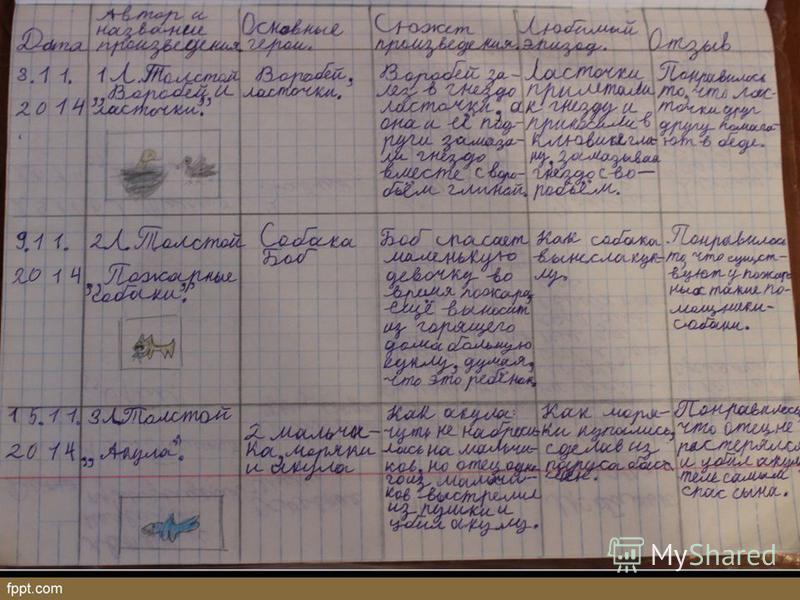 Дата
Автор и
название
произведения
Основные
герои.
Сюжет
произведения
Любимый
эпизод.
Отзыв
8.11.
2014
1 Л. Толстой
„Воробей и
ласточки."
Воробей,
ласточки.
Воробей за-
лез в гнездо
ласточки, а
она и её под-
руги замаза-
ли гнездо
вместе с воро-
бьём глиной.
Ласточки
прилетали
к гнезду и
приносили в
клювике гли
ну, замазывая
гнездо с во-
робьём.
Понравилось
то, что лас-
точки друг
другу помога-
ют в беде.
9.11.
2014
2 Л. Толстой
„Пожарные
собаки".
Собака
Боб
Боб спасает
маленькую
девочку во
время пожара,
ещё выносит
из горящего
дома большую
куклу, думая,
что это ребёнок.
Как собака
вынесла кук-
лу.
Понравилось
то, что сущест-
вуют у пожар
ных такие по-
мощники-
собаки.
15.11.
2014
3 Л. Толстой
„Акула".
2 мальчи-
ка, моряки
и акула
Как акула
чуть не набросы
лась на мальчи-
ков, но отец одно
го из мальчи-
ков выстрелил
из пушки и
убил акулу.
Как моря-
ки купались,
сделав из
паруса басс
ейн.
Понравилось
что отец не
растерялся
и убил акул
тем самым
спас сына.
MyShared
fppt.com